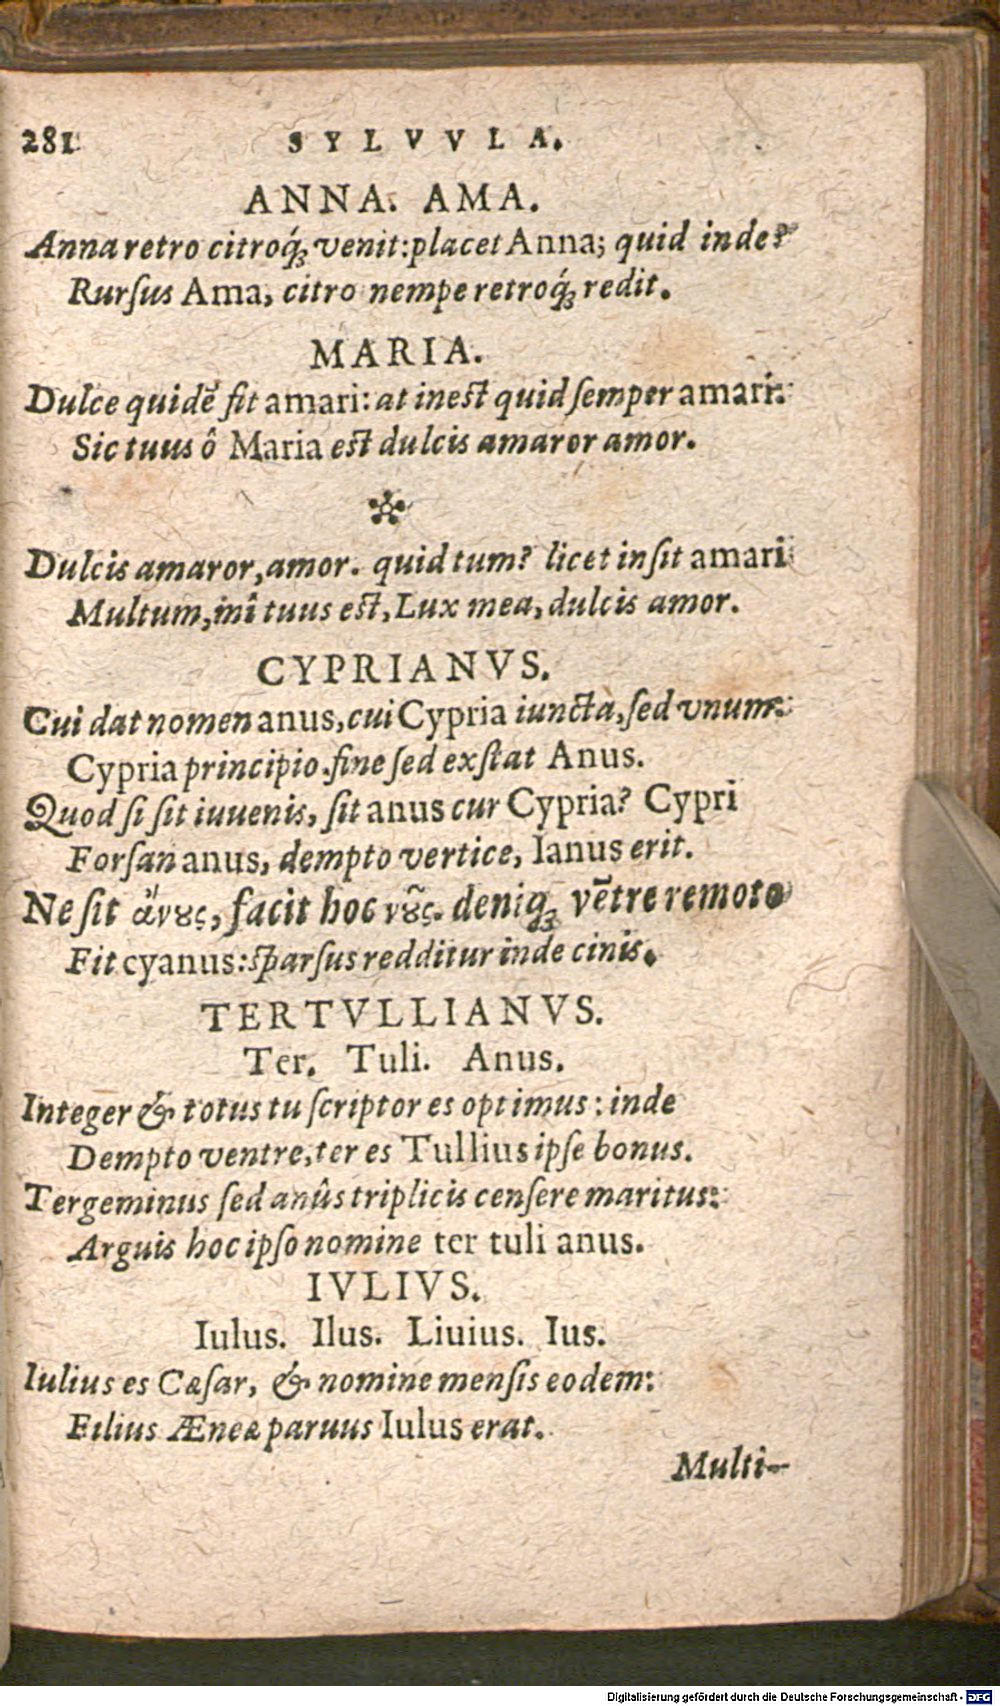 281 SYLVVLA.
ANNA. AMA.
Anna retro citroq́; venit: placet Anna; quid inde?
Rurſus Ama, citro nempe retroq́; redit.
MARIA.
Dulce quidẽ ſit amari: at ineſt quid ſemper amari:
Sic tuus ô Maria eſt dulcis amaror amor.
Dulcis amaror, amor. quid tum? licet inſit amari
Multum, mî tuus eſt, Lux mea, dulcis amor.
CYPRIANVS.
Cui dat nomen anus, cui Cypria iuncta, ſed vnum:
Cypria principio. fine ſed exſtat Anus.
Quod ſi ſit iuuenis, ſit anus cur Cypria? Cypri
Forſan anus, dempto vertice, Ianus erit.
Ne ſit ἄνȣς, facit hoc νȣ͂ς. deniq; vẽtre remoto
Fit cyanus: ſparſus redditur inde cinis.
TERTVLLIANVS.
Ter. Tuli. Anus.
Integer & totus tu ſcriptor es optimus: inde
Dempto ventre, ter es Tullius ipſe bonus.
Tergeminus ſed anûs triplicis cenſere maritus:
Arguis hoc ipſo nomine ter tuli anus.
IVLIVS.
Iulus. Ilus. Liuius. Ius.
Iulius es Cæſar, & nomine menſis eodem:
Filius Æneæ paruus Iulus erat.
Multi-
Digitalisierung gefördert durch die Deutsche Forschungsgemeinschaft - DFG